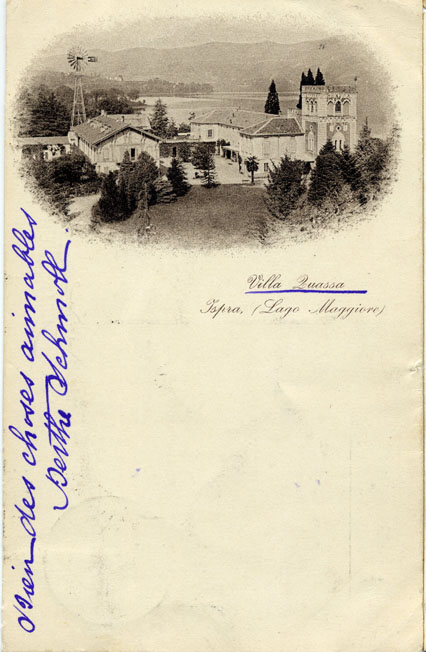 Villa Quassa
Ispra, (Lago Maggiore)
Bien des choses aimables
Berthe Schmoll